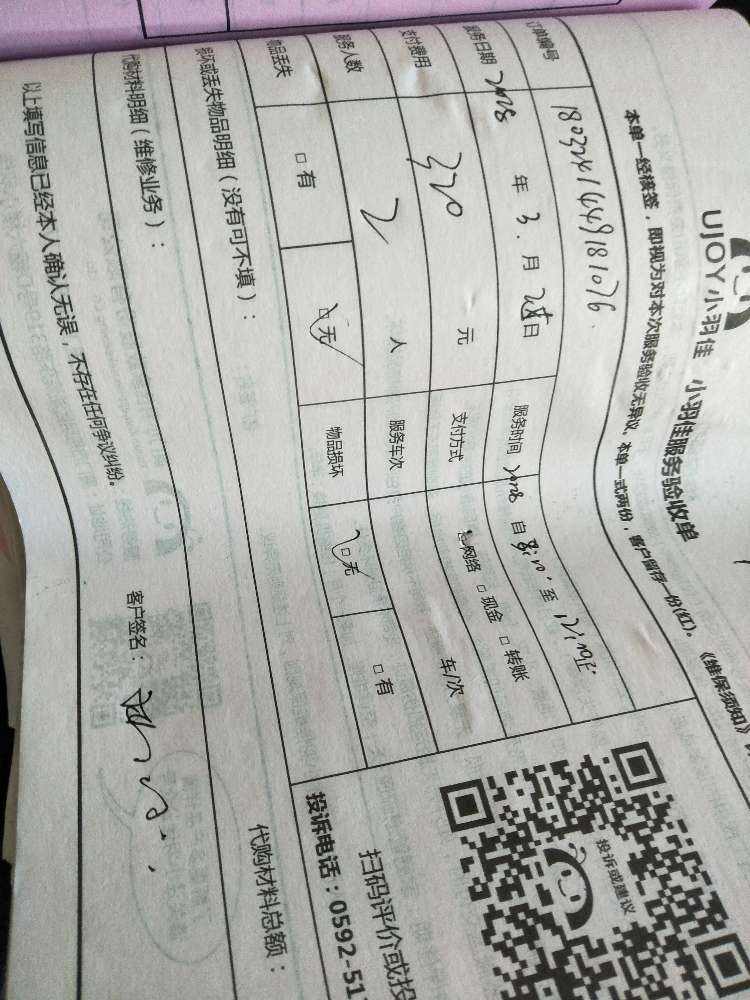 UJOY小羽佳 小羽佳服务验收单
本单一经接签，即视为对本次服务验收无异议。本单一式两份，客户留存一份(红)。《维保须知》
订单编号 1803241449181076
服务日期 2018 年 3 月 日 服务时间 2018 自 8:00 至 12:00
支付费用 320 元 支付方式 网络 □ 现金 □ 转账
服务人数 2 人 服务车次 车/次
物品丢失 □ 有 □ 无 物品损坏 □ 无 □ 有
损坏或丢失物品明细（没有可不填）：
代购材料明细（维修业务）：
代购材料总额：
以上填写信息已经本人确认无误，不存在任何争议纠纷。
客户签名：
投诉或建议
扫码评价或投
投诉电话：0592-51